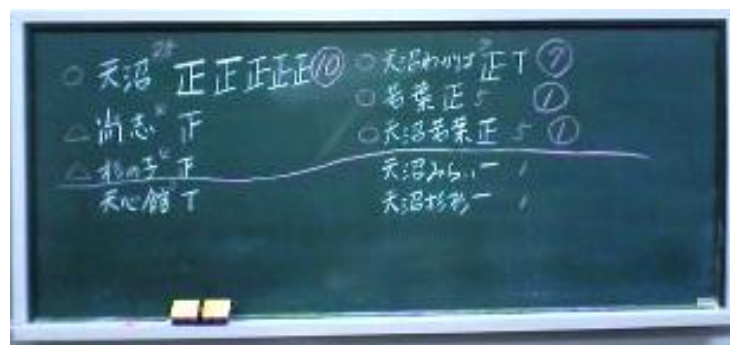 ○ 天沼 25 正正正正正 ⑩
△ 尚志 正
△ 杉の子 下
天心館 T
○ 天沼わかば 7 正T ⑦
○ 若葉 正 5 ①
○ 天沼若葉 正 5 ①
天沼みらい 一 1
天沼杉 一 1